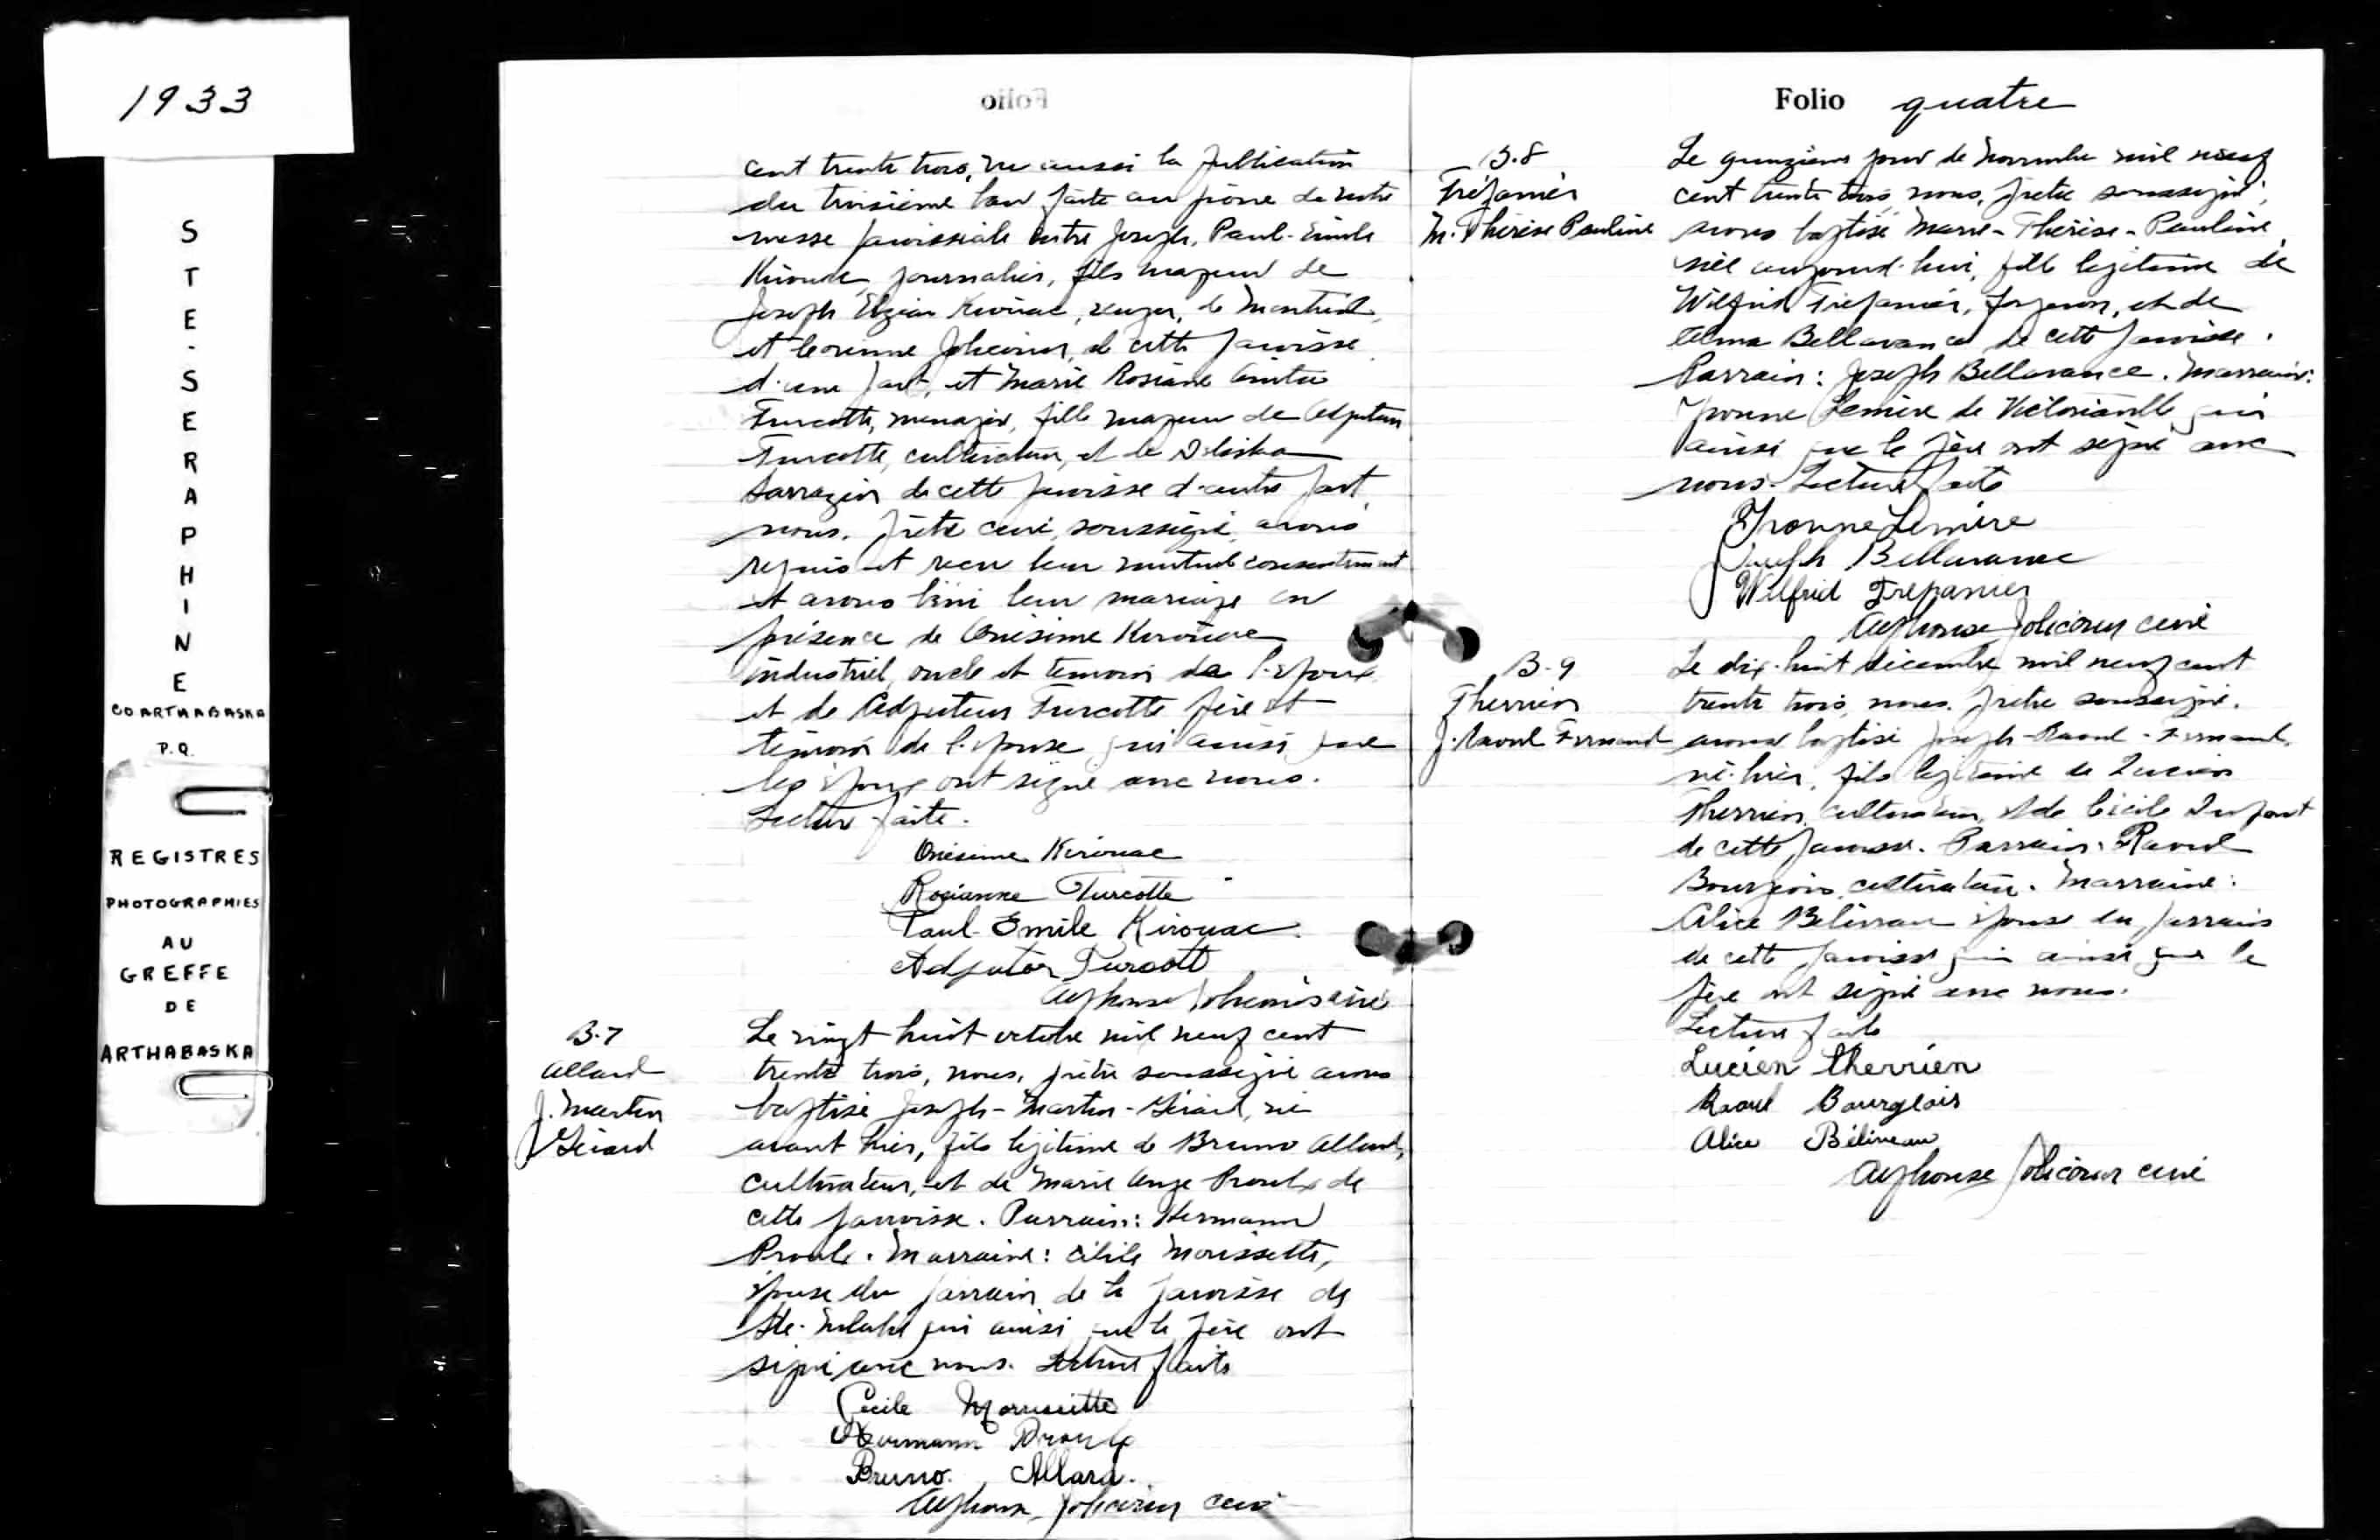 1933
STE-SERAPHINE
CO ARTHABASKA
P.Q.
REGISTRES
PHOTOGRAPHIES
AU
GREFFE
DE
ARTHABASKA
Folio
cent trente trois, vu aussi la publication
du troisième ban faite au prône de notre
messe paroissiale entre Joseph, Paul-Emile
Kirouac, journalier, fils majeur de
Joseph Elzéar Kirouac, de Montréal,
et Corinne Jolicoeur, de cette paroisse
d'une part, et Marie Rosiane
Turcotte, menagère, fille majeure de Adjuteur
Turcotte, cultivateur, et de Déliska
Sarrazin de cette paroisse d'autre part,
nous, prêtre curé, soussigné, avons
requis et reçu leur mutuel consentement
et avons béni leur mariage en
présence de Onésime Kirouac
industriel, oncle et temoin de l'époux
et de Adjuteur Turcotte père et
témoin de l'épouse qui ainsi que
les époux ont signé avec nous.
Lecture faite.
Onésime Kirouac
Rosianne Turcotte
Paul-Emile Kirouac.
Adjutor Turcott
Alphonse Jolicoeur curé
B-7
Allard
J. Martin
Gérard
Le vingt huit octobre mil neuf cent
trente trois, nous, prêtre soussigné avons
baptisé Joseph-Martin-Gérard, né
avant hier, fils légitime de Bruno Allard,
cultivateur, et de Marie Ange Proulx de
cette paroisse. Parrain: Hermann
Proulx. Marraine: Cécile Morissette,
épouse du parrain de la paroisse de
Ste- qui ainsi que le père ont
signé avec nous. Lecture faite
Cécile Morrissette
Hermann Proulx
Bruno. Allard.
Alphonse Jolicoeur curé
Folio quatre
B.8
Trépanier
M. Thérèse Pauline
Le quinzième jour de Novembre mil neuf
cent trente trois, nous, prêtre soussigné,
avons baptisé Marie-Thérèse-Pauline,
née aujourd'hui, fille légitime de
Wilfrid Trépanier, forgeron, et de
Alma Bellavance de cette paroisse.
Parrain: Joseph Bellavance. Marraine:
Yvonne Lemire de Victoriaville qui
ainsi que le père ont signé avec
nous. Lecture faite
Yvonne Lemire
Joseph Bellavance
Wilfrid Trepanier
Alphonse Jolicoeur curé
B-9
Therrien
J. Raoul Fernand
Le dix-huit décembre mil neuf cent
trente trois, nous, prêtre soussigné,
avons baptisé Joseph-Raoul-Fernand,
né hier, fils légitime de Lucien
Therrien, cultivateur, et de Cécile Dupont
de cette paroisse. Parrain: Raoul
Bourgeois cultivateur. Marraine:
Alice Béliveau épouse du parrain
de cette paroisse qui ainsi que le
père ont signé avec nous.
Lecture faite
Lucien Therrien
Raoul Bourgeois
Alice Béliveau
Alphonse Jolicoeur curé